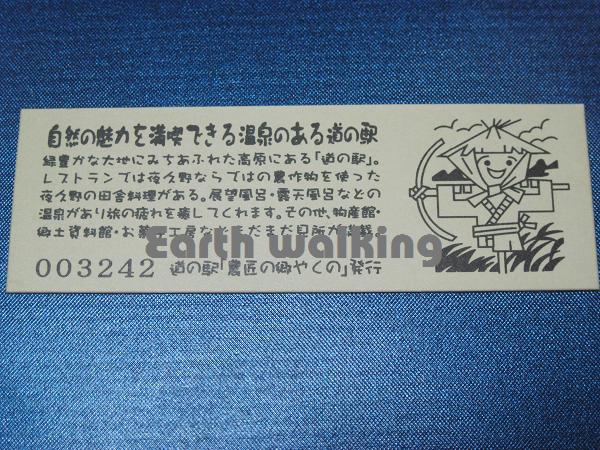 自然の魅力を満喫できる温泉のある道の駅
緑豊かな大地にみちあふれた高原にある「道の駅」。
レストランでは夜久野ならではの農作物を使った
夜久野の田舎料理がある。展望風呂・露天風呂などの
温泉があり旅の疲れを癒してくれます。その他、物産館・
郷土資料館・お菓子工房などまだまだ見所が満載
Earth walking
003242 道の駅「農匠の郷やくの」発行